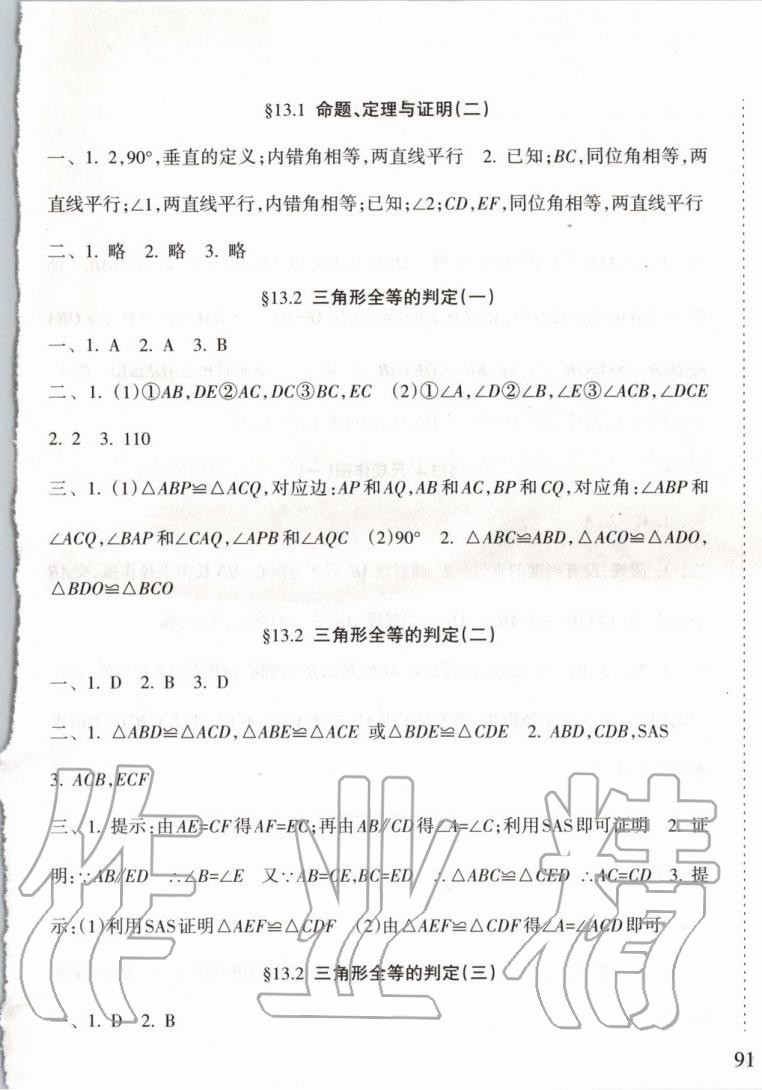 §13.1 命题、定理与证明(二)
一、1. 2,90°,垂直的定义;内错角相等,两直线平行 2. 已知;BC,同位角相等,两
直线平行;∠1,两直线平行,内错角相等;已知;∠2;CD,EF,同位角相等,两直线平行
二、1. 略 2. 略 3. 略
§13.2 三角形全等的判定(一)
一、1. A 2. A 3. B
二、1. (1)①AB,DE②AC,DC③BC,EC (2)①∠A,∠D②∠B,∠E③∠ACB,∠DCE
2. 2 3. 110
三、1. (1)△ABP≌△ACQ,对应边:AP和AQ,AB和AC,BP和CQ,对应角:∠ABP和
∠ACQ,∠BAP和∠CAQ,∠APB和∠AQC (2)90° 2. △ABC≌ABD,△ACO≌△ADO,
△BDO≌△BCO
§13.2 三角形全等的判定(二)
一、1. D 2. B 3. D
二、1. △ABD≌△ACD,△ABE≌△ACE 或△BDE≌△CDE 2. ABD,CDB,SAS
3. ACB,ECF
三、1. 提示:由AE=CF得AF=EC;再由AB∥CD得∠A=∠C;利用SAS即可证明 2. 证
明:∵AB∥ED ∴∠B=∠E 又∵AB=CE,BC=ED ∴△ABC≌△CED ∴AC=CD 3. 提
示:(1)利用SAS证明△AEF≌△CDF (2)由△AEF≌△CDF得∠A=∠ACD即可
§13.2 三角形全等的判定(三)
一、1. D 2. B
91
作业精